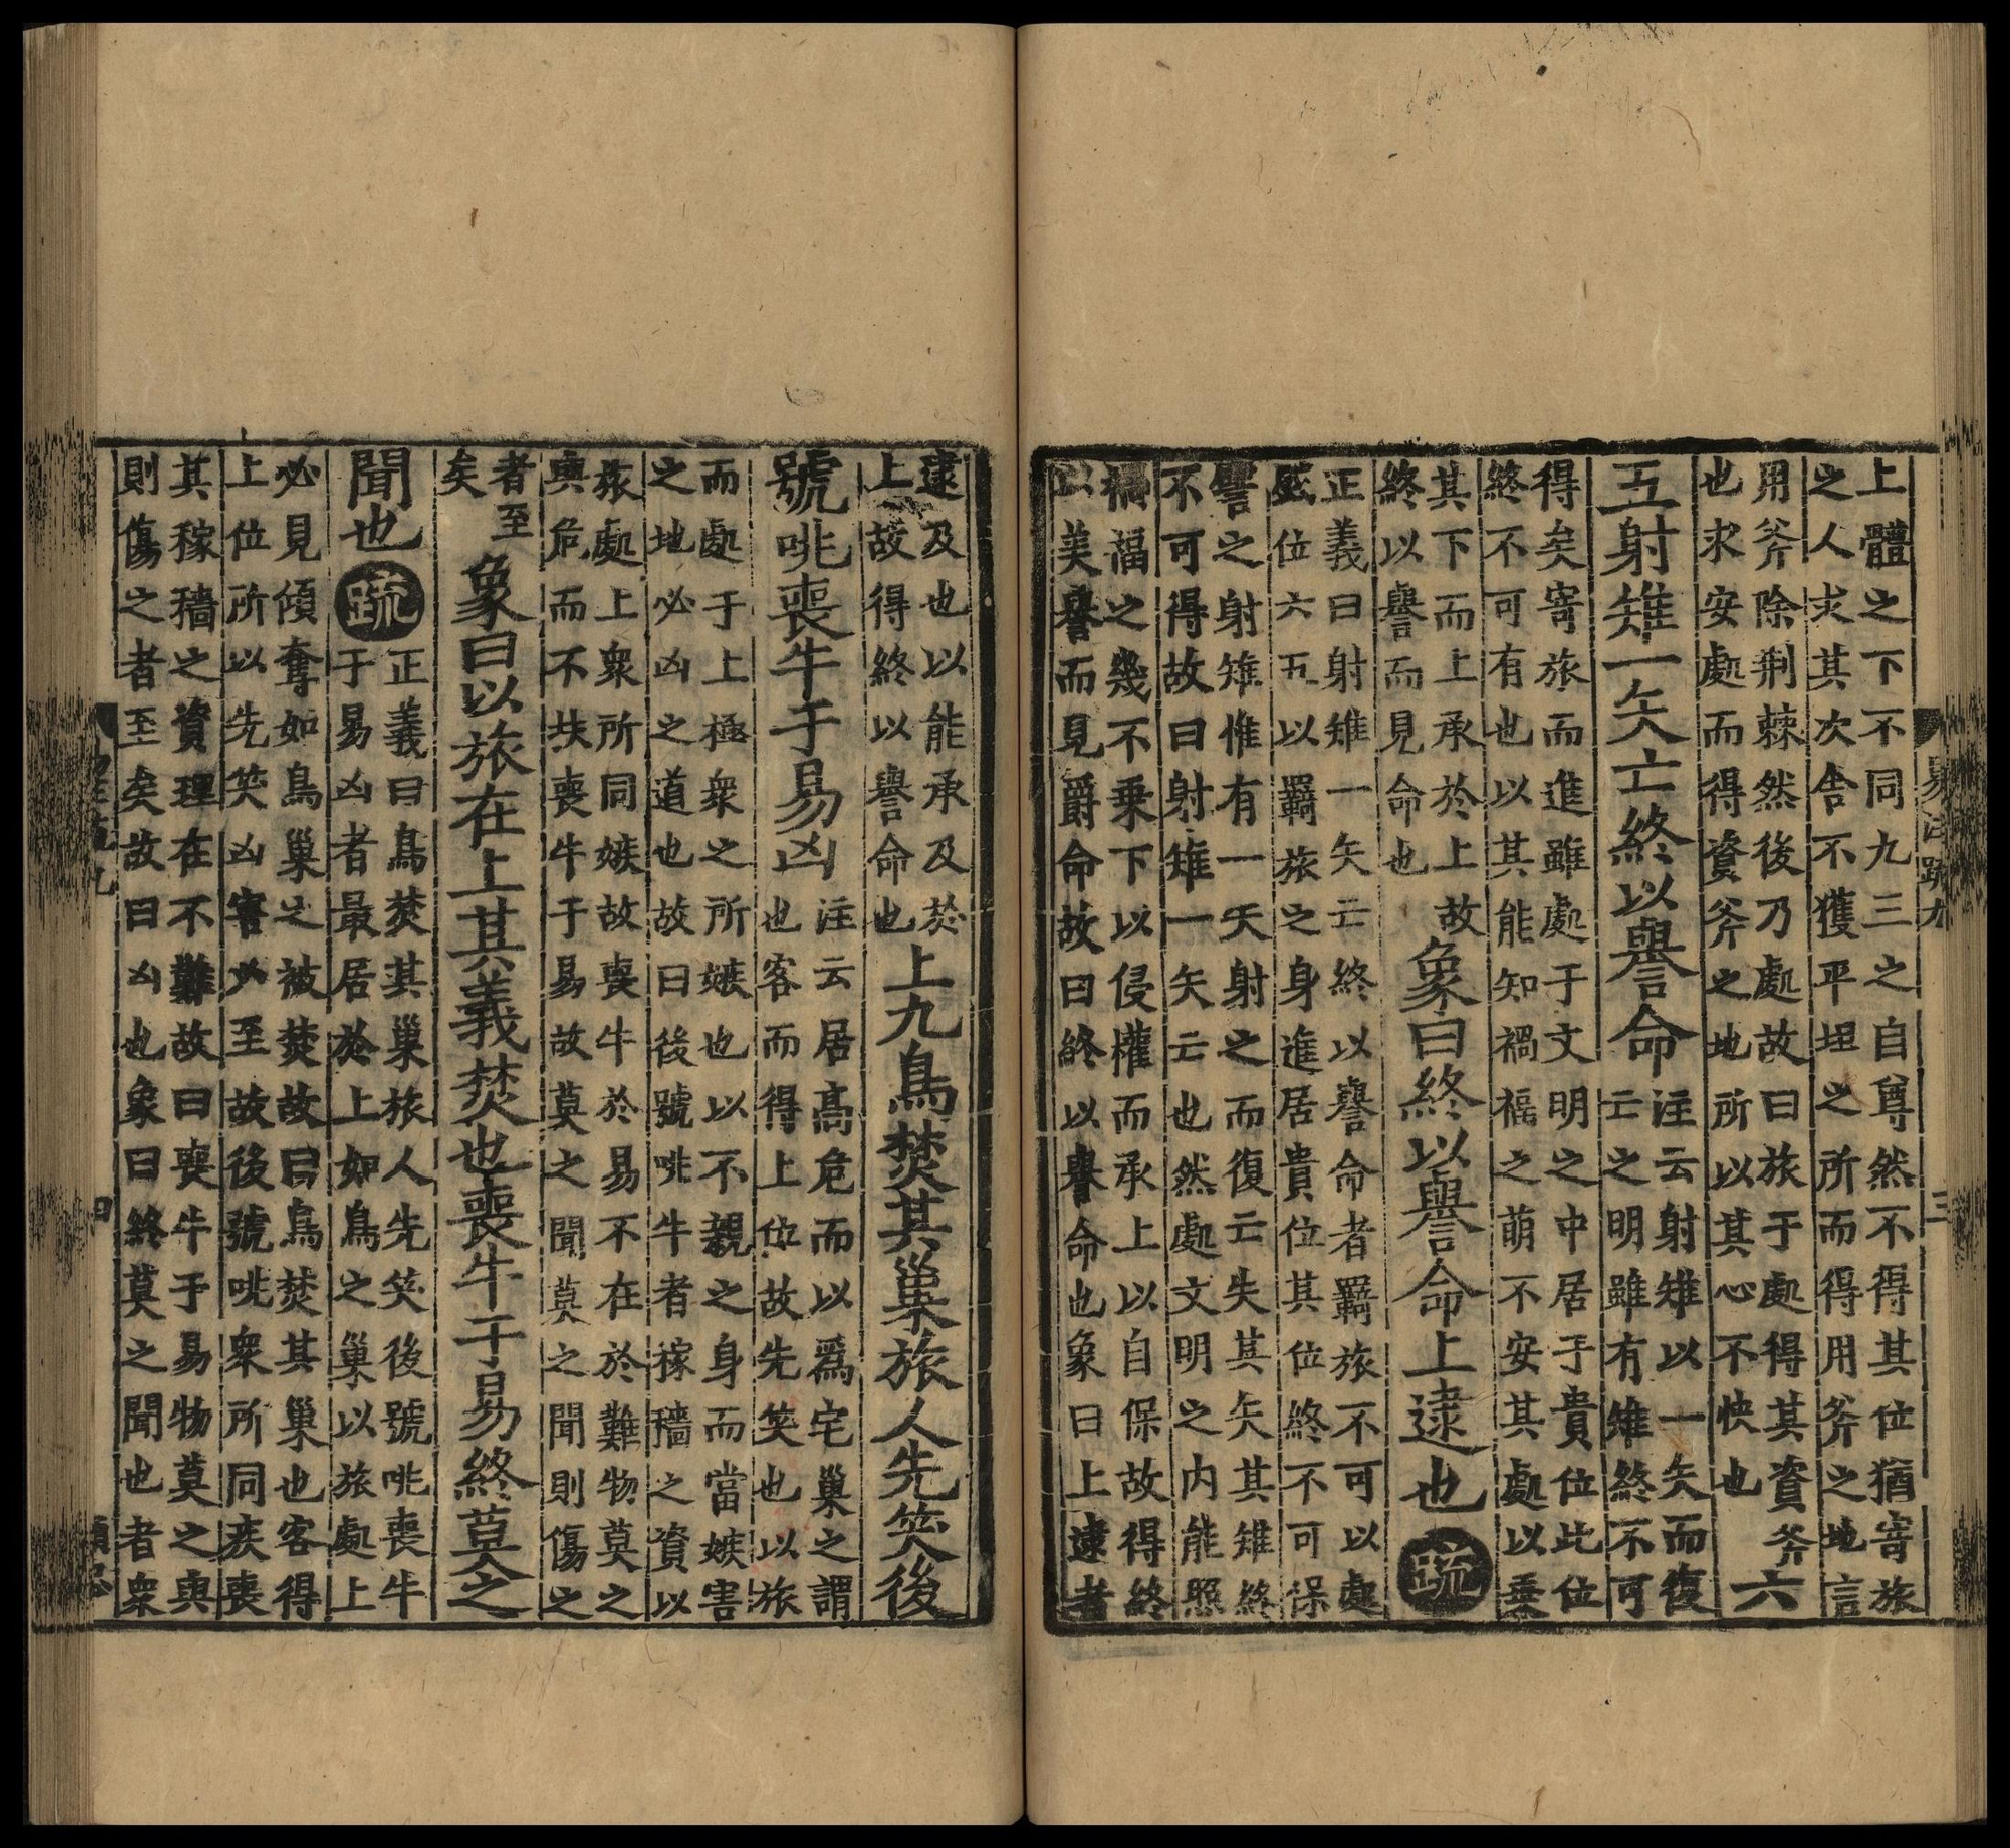 易注疏九　三
上體之下不同九三之自尊然不得其位猶寄旅
之人求其次舍不獲平坦之所而得用斧之地言
用斧除荆棘然後乃處故曰旅于處得其資斧
也求安處而得資斧之地所以其心不快也
六
五射雉一矢亡終以譽命
注云射雉以一矢而復
亡之明雖有雉終不可
得矣寄旅而進雖處于文明之中居于貴位此位
終不可有也以其能知禍福之萌不安其處以乗
其下而上承於上故
終以譽而見命也
象曰終以譽命上逮也疏
正義曰射雉一矢亡終以譽命者羇旅不可以處
盛位六五以羇旅之身進居貴位其位終不可保
譬之射雉惟有一矢射之而復亡失其矢其雉終
不可得故曰射雉一矢亡也然處文明之内能照
禍福之幾不乗下以侵權而承上以自保故得終
以美譽而見爵命故曰終以譽命也象曰上逮者
逮及也以能承及於
上故得終以譽命也
上九鳥焚其巢旅人先笑後
號咷喪牛于易凶
注云居高危而以爲宅巢之謂
也客而得上位故先笑也以旅
而處于上極衆之所嫉也以不親之身而當嫉害
之地必凶之道也故曰後號咷牛者稼穡之資以
旅處上衆所同嫉故喪牛於易不在於難物莫之
與危而不扶喪牛于易故莫之聞莫之聞則傷之
者至
矣
象曰以旅在上其義焚也喪牛于易終莫之
聞也疏
正義曰鳥焚其巢旅人先笑後號咷喪牛
于易凶者最居於上如鳥之巢以旅處上
必見傾奪如鳥巢之被焚故曰鳥焚其巢也客得
上位所以先笑凶害必至故後號咷衆所同疾喪
其稼穡之資理在不難故曰喪牛于易物莫之與
則傷之者至矣故曰凶也象曰終莫之聞也者衆